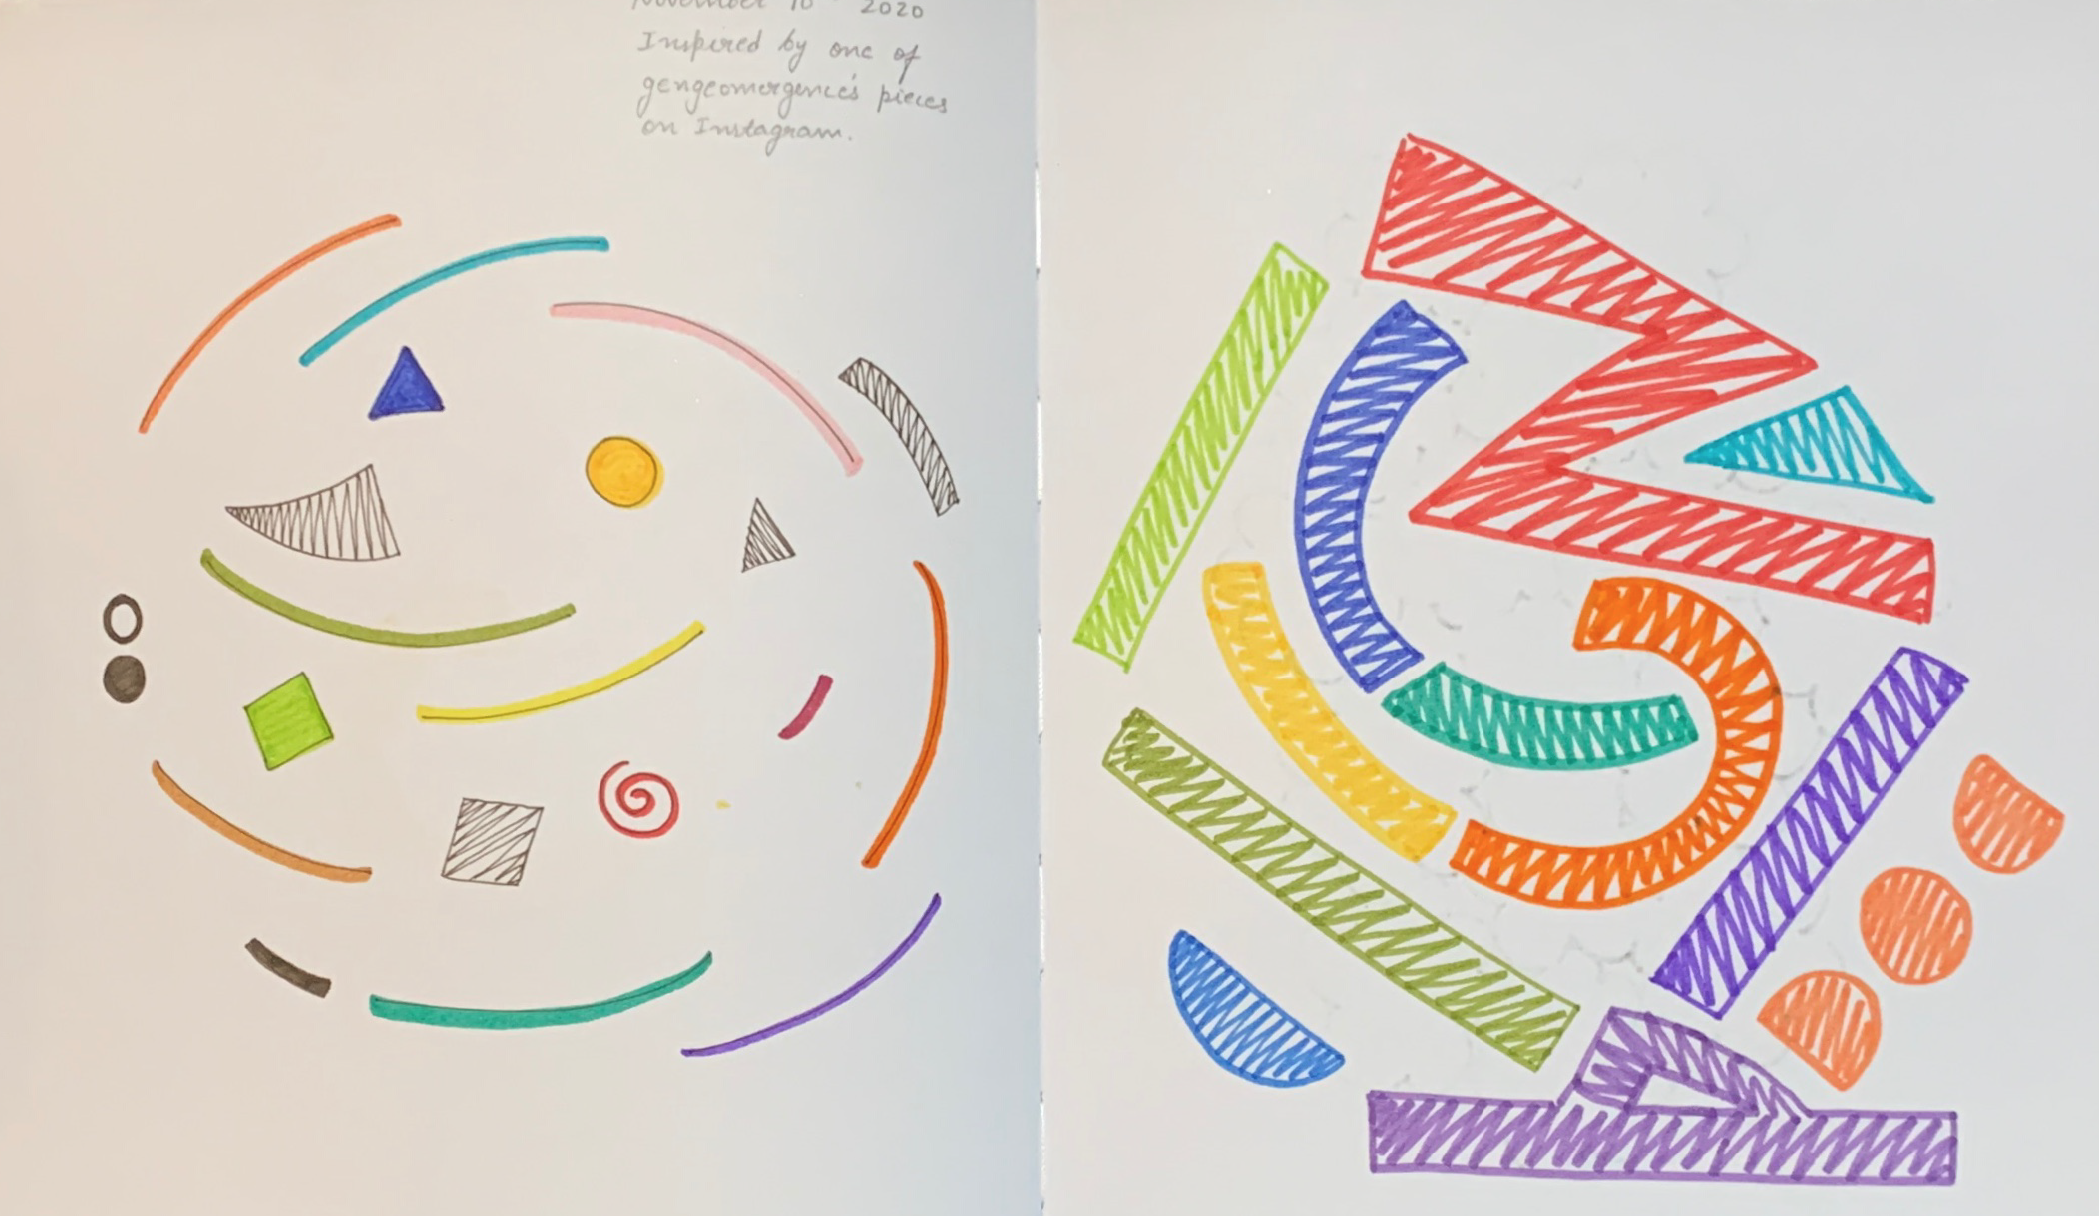 November 10 2020
Inspired by one of
gengeomergence's pieces
on Instagram.